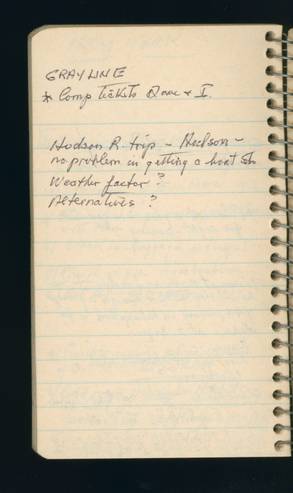 GRAYLINE
* Comp tickets Dave + I.
Hudson R trip – Hudson –
no problem in getting a boat
Weather factor?
Alternatives?